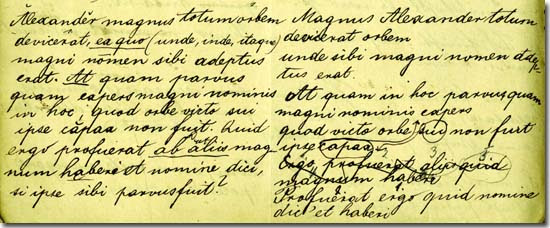 Alexander magnus totum orbem
devicerat, ea quo (unde, inde, itaque)
magni nomen sibi adeptus
erat. At quam parvus
quam expers magni nominis
in hoc, quod orbe victo sui
ipse capax non fuit. Quid
ergo profuerat ab aliis mag-
num haberi et nomine dici,
si ipse sibi parvus fuit?
Magnus Alexander totum
devicerat orbem
unde sibi magni nomen adep-
tus erat.
At quam in hoc parvus, quam
magni nominis expers
quod victo orbe sui non fuit
ipse capax
Ergo profuerat aliis quid
magnum haberi
Profuerat ergo quid nomine
dici et haberi